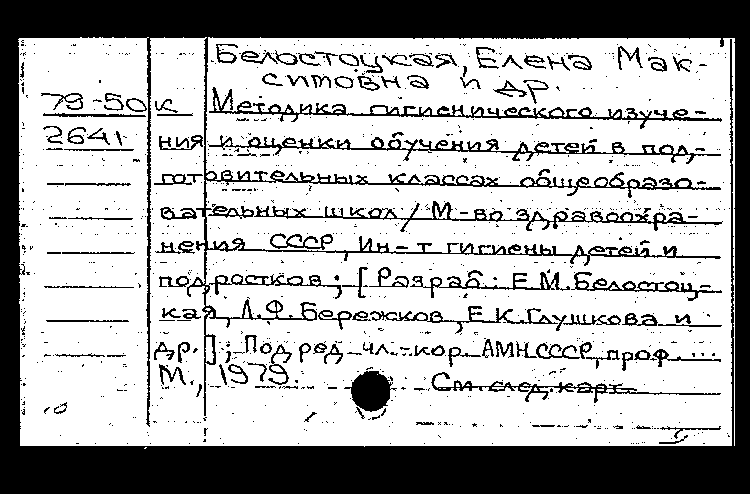 Белостоцкая, Елена Мак-
симовна и др.
79-50 к Методика гигиенического изуче-
2641 ния и оценки обучения детей в под-
готовительных классах общеобразо-
вательных школ / М-во здравоохра-
нения СССР, Ин-т гигиены детей и
подростков ; [ Разраб.: Е.М. Белостоц-
кая, Л.Ф. Бережков, Е.К. Глушкова и
др. ] ; Под ред. чл.-кор. АМН СССР, проф. ...
М., 1979. См. след. карт.